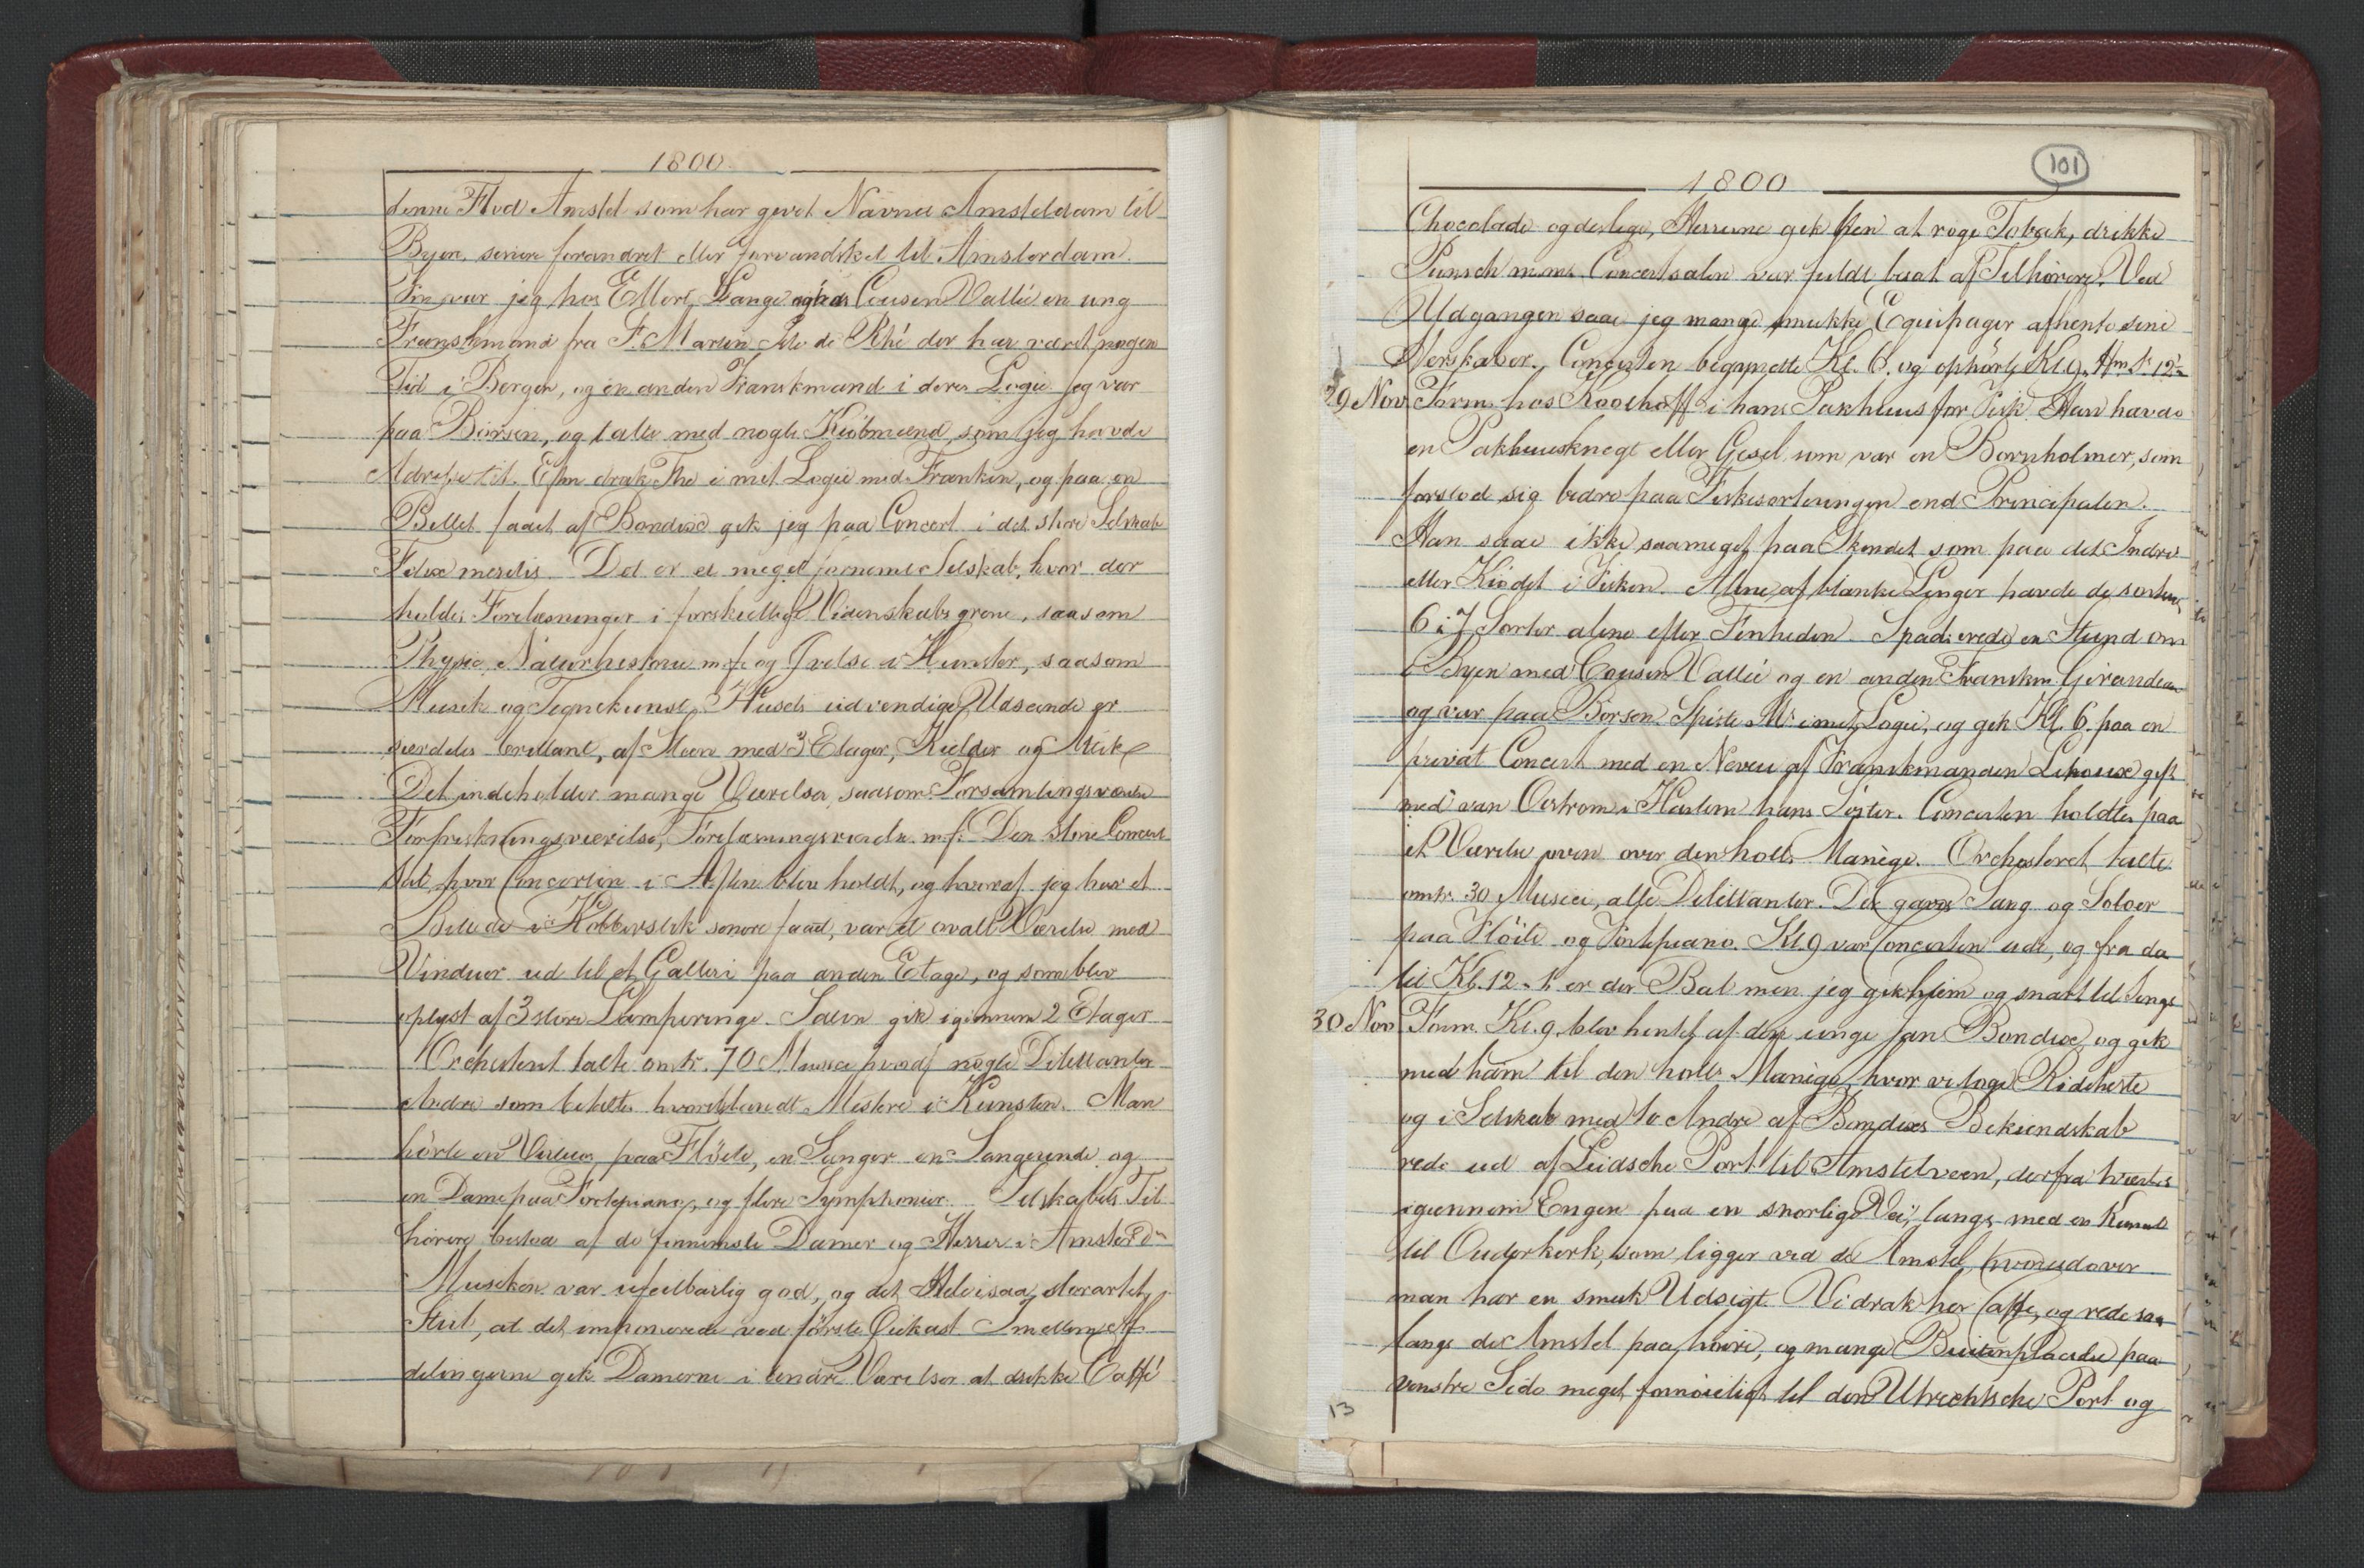 1800
denne Flod Amstel som har givet Navnet Amsteldam til
Byen, senere forandret eller forvandsket til Amsterdam.
Fm var jeg hos Ellert Lange og hos Cousen Vallée en ung
Franskmand fra St. Martin Isle de Rhé der har været nogen
Tid i Bergen, og en anden Franskmand i deres Logie. Jeg var
paa Börsen, og talte med nogle Kiöbmænd, som jeg havde
Adresse til. Efm drak The i mit Logie med Franken, og paa en
Billet faaet af Bondixe gik jeg paa Concert i det store Selskab
Felix meritis. Det er et meget fornemt Selskab, hvor der
holdes Forelæsninger i forskiellige Videnskabs grene, saasom
Physic, Naturhistorie m.f. og Örelse i Kunster, saasom
Musik og Tegnekunst. Husets udvendige Udseende er
særdeles brillant, af Steen med 3 Etager, Kielder og
Det indeholder mange Værelser, saasom Forsamlingsværelse
Forfriskningsværelse, Forelæsningsværelse m.f. Den store Concert
Sal hvor Concerten i Aften blev holdt, og hvoraf jeg har et
Billede i Kobberstik senere faaet, var et ovalt Værelse med
Vinduer ud til et Galleri paa anden Etage, og som blev
oplyst af 3 store Lamperinge. Salen gik igiennem 2 Etager
Orchesteret talte omtr. 70 Musici hvoraf nogle Dilettanter
Andre som betaltes hvoriblandt Mestere i Kunsten. Man
hörte en Virtuos paa Flöite, en Sanger en Sangerinde og
en Dame paa Fortepiano, og flere Symphonier. Selskabets Til
hörere bestod af de fornemste Damer og Herrer i Amsterdn
Musiken var ufeilbarlig god, og det Hele i saa storartet
Stiil, at det imponerede ved förste Öiekast. Imellem Af
delingerne gik Damerne i andre Værelser at drikke Caffé
101
1800
Chocolade og deslige, Herrerne gik hen at röge Tobak, drikke
Punsch m.m. Concertsalen var fuldt besat af Tilhörere. Ved
Udgangen saae jeg mange smukke Equipager afhente sine
Herskaber. Concerten begyndte Kl. 6. og ophörte Kl. 9.
29 Nov Form. hos Kooshoff i hans Pakhuus for Fisk. Han havde
en Pakhuusknegt eller Gesel som var en Bornholmer, som
forstod sig bedre paa Fiskesorteringen end Principalen.
Han saae ikke saameget paa Skindet som paa det Indre
eller Kiödet i Fisken. Alene af blanke Lenger havde de
6 à 7 Sorter alene efter Fiinheden. Spadserede en Stund om
i Byen med Cousin Vallée og en anden Franskm. Giraudeau
og var paa Börsen. Spiste M. i mit Logie, og gik Kl 6. paa en
privat Concert med en Neveu af Franskmanden Lehoux gift
med van Oestrom i Harlem hans Söster. Concerten holdtes paa
et Værelse oven over den holl. Manège. Orchesteret talte
omtr. 30 Musici, alle Dilettanter. Der gaves Sang og Soloer
paa Flöite og Fortepiano. Kl 9 var Concerten ude, og fra da
til Kl. 12 - 1. er der Bal men jeg gik hiem og snart til Sengs
30 Nov Form. Kl. 9. blev hentet af den unge Jan Bondixe, og gik
med ham til den holl. Manège, hvor vi toge Rideheste
og i Selskab med to Andre af Bondixes Bekiendskab
rede ud af Leidsche Port til Amstelveen, derfra tværts
igiennem Engene paa en snorlige Vei, langs med en Kanal
til Ouderkerk, som ligger ved de Amstel, hvorudover
man har en smuk Udsigt. Vi drak her Caffe, og rede saa
langs des Amstel paa höire, og mange Buitenplaadse paa
venstre Side meget fornöieligt til den Utrechtsche Port og
13